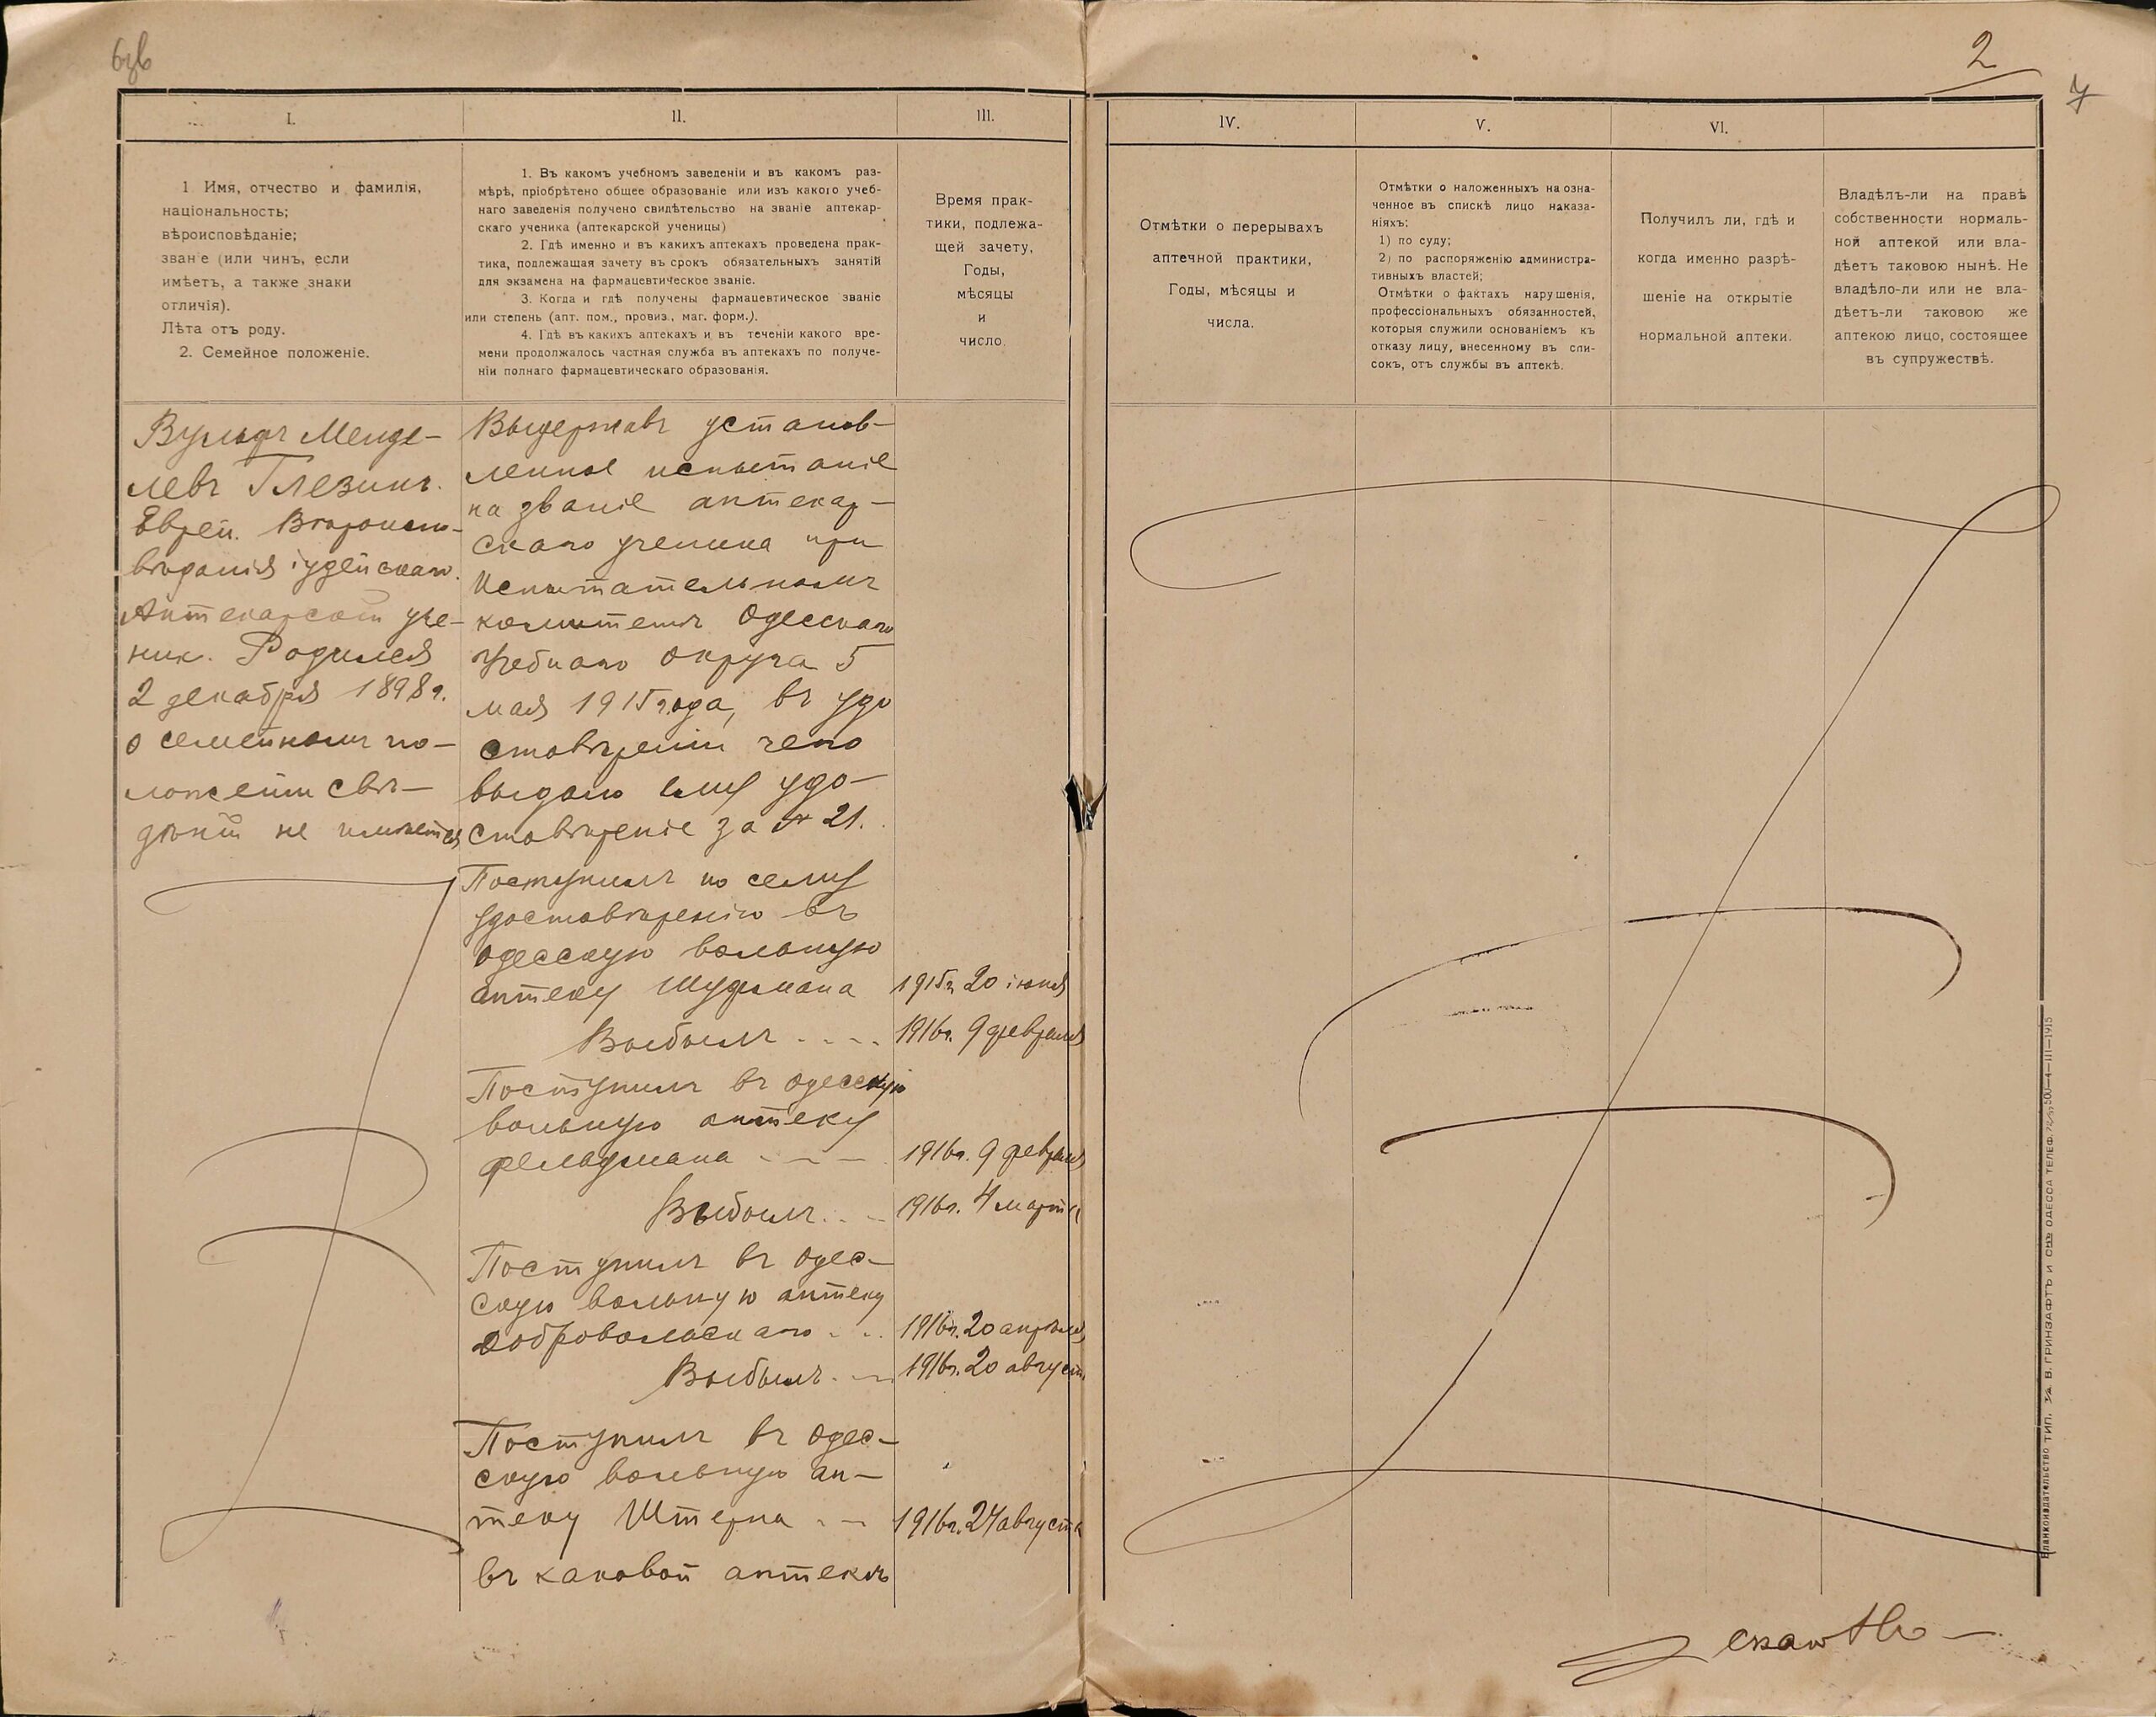 2
7
I.
II.
III.
IV.
V.
VI.
1 Имя, отчество и фамилія,
національность;
вѣроисповѣданіе;
зван е (или чинъ, если
имѣетъ, а также знаки
отличія).
Лѣта отъ роду.
2. Семейное положеніе.
1. Въ какомъ учебномъ заведеніи и въ какомъ раз-
мѣрѣ, пріобрѣтено общее образованіе или изъ какого учеб-
наго заведенія получено свидѣтельство на званіе аптекар-
скаго ученика (аптекарской ученицы)
2. Гдѣ именно и въ какихъ аптекахъ проведена прак-
тика, подлежащая зачету въ срокъ обязательныхъ занятій
для экзамена на фармацевтическое званіе.
3. Когда и гдѣ получены фармацевтическое званіе
или степень (апт. пом., провиз., маг. форм.).
4. Гдѣ въ какихъ аптекахъ и въ теченіи какого вре-
мени продолжалось частная служба въ аптекахъ по получе-
ніи полнаго фармацевтическаго образованія.
Время прак-
тики, подлежа-
щей зачету,
Годы,
мѣсяцы
и
число.
Отмѣтки о перерывахъ
аптечной практики,
Годы, мѣсяцы и
числа.
Отмѣтки о наложенныхъ на озна-
ченное въ спискѣ лицо наказа-
ніяхъ:
1) по суду;
2) по распоряженію администра-
тивныхъ властей;
Отмѣтки о фактахъ нарушенія,
профессіональныхъ обязанностей,
которыя служили основаніемъ къ
отказу лицу, внесенному въ спи-
сокъ, отъ службы въ аптекѣ.
Получилъ ли, гдѣ и
когда именно разрѣ-
шеніе на открытіе
нормальной аптеки.
Владѣлъ-ли на правѣ
собственности нормаль-
ной аптекой или вла-
дѣетъ таковою нынѣ. Не
владѣло-ли или не вла-
дѣетъ-ли таковою же
аптекою лицо, состоящее
въ супружествѣ.
Вульфъ Менде-
левъ Глезинъ.
Еврей. Вѣроиспо-
вѣданія іудейскаго.
Аптекарскій уче-
ник. Родился
2 декабря 1898 г.
о семейномъ по-
ложеніи свѣ-
дѣній не имѣется
Выдержавъ установ-
ленное испытаніе
на званіе аптекар-
скаго ученика при
Испытательномъ
комитетѣ Одесскаго
Учебнаго Округа 5
мая 1915 года, въ удо
стовѣреніи чего
выдано ему удо-
стовѣреніе за № 21.
Поступилъ по сему
удостовѣренію въ
одесскую вольную
аптеку Шуфмана 1915г. 20 іюня
Выбылъ .... 1916г. 9 февраля
Поступилъ въ одесскую
вольную аптеку
Фельдмана - - - 1916г. 9 февраля
Выбылъ... 1916г. 4 марта
Поступилъ въ одес-
скую вольную аптеку
Добровольскаго... 1916г. 20 апрѣля
Выбылъ. - 1916г. 20 август
Поступилъ въ одес-
скую вольную ап-
теку Штерна - - 1916г. 24 августа
въ каковой аптекѣ
Бланкоиздательство ТИП. В. ГРИНЗАФТЪ и СНЪ ОДЕССА ТЕЛЕФ. 500-4-III-1915